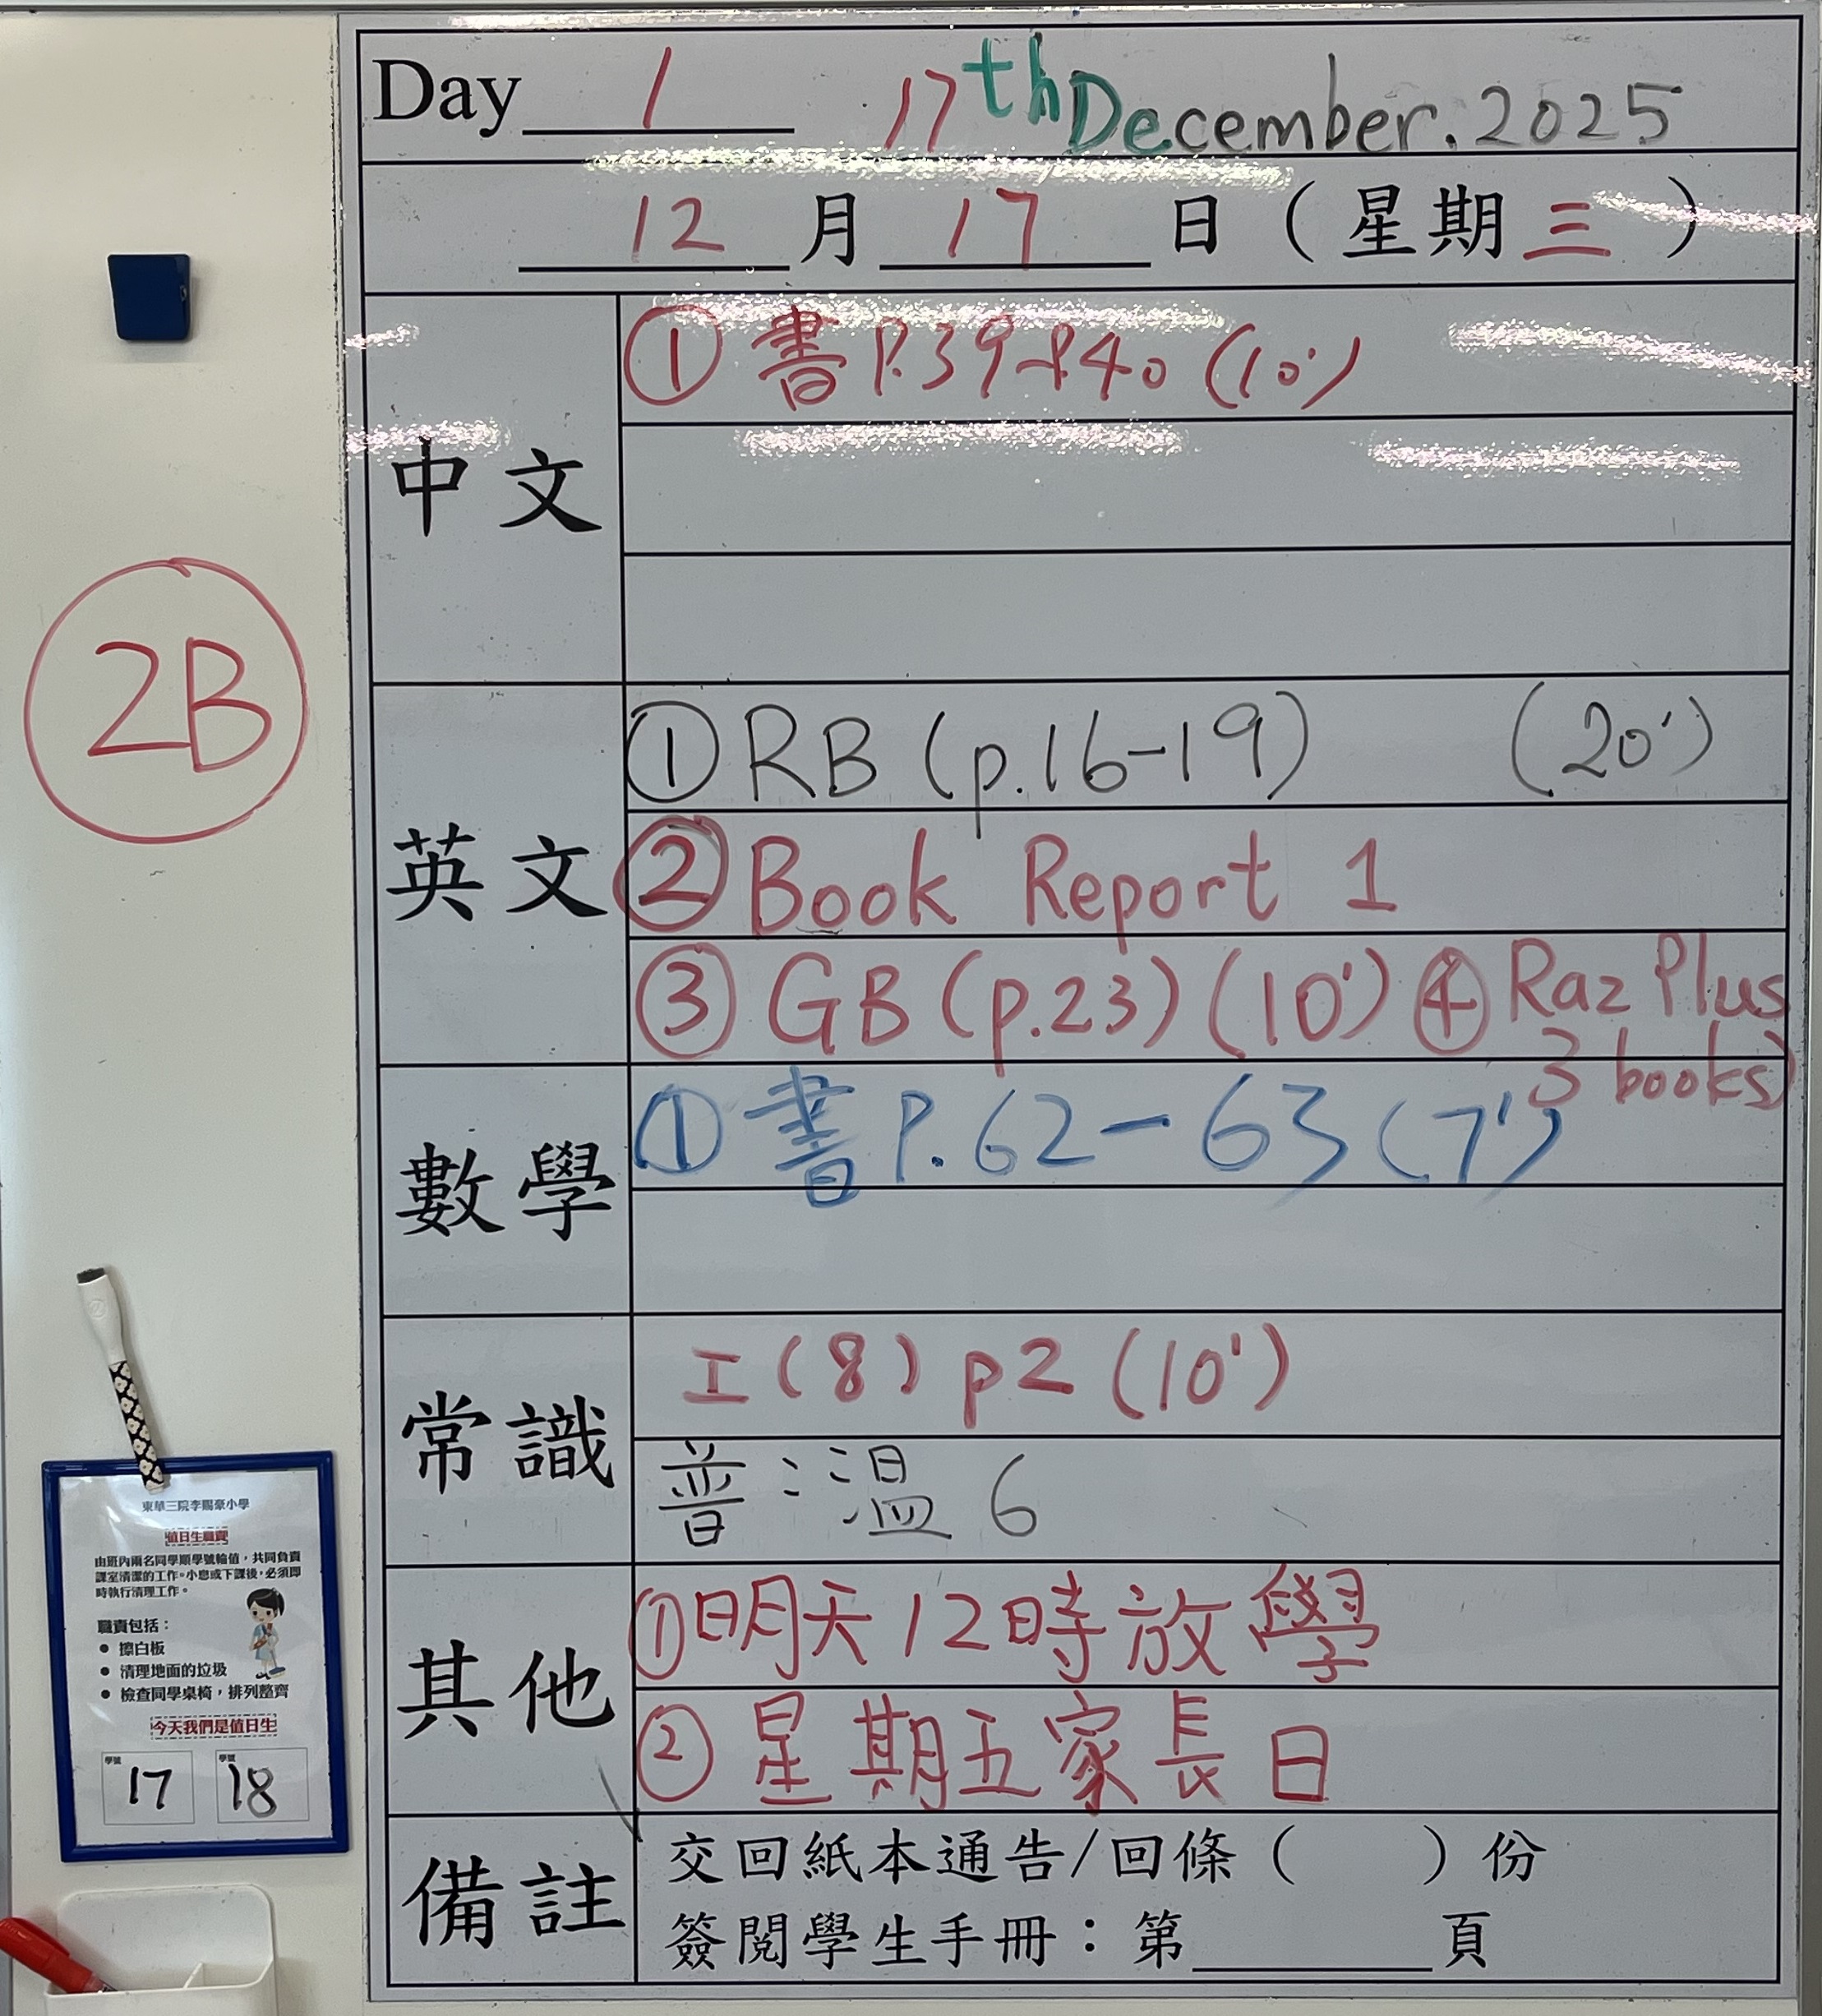 Day 1 17th December.2025
12 月 17 日（星期三）
中文
① 書 P.39-P.40 (10')
英文
① RB (p.16-19) (20')
② Book Report 1
③ GB (p.23) (10') ④ Raz Plus
3 books)
數學
① 書 P.62-63 (7')
常識
I (8) p2 (10')
普：溫 6
其他
① 明天12時放學
② 星期五家長日
備註
交回紙本通告/回條（ ）份
簽閱學生手冊：第 頁
2B
東華三院李賜豪小學
值日生職責
由班內兩名同學順學號輪值，共同負責
課室清潔的工作。小息或下課後，必須即
時執行清理工作。
職責包括：
● 擦白板
● 清理地面的垃圾
● 檢查同學桌椅，排列整齊
今天我們是值日生
學號 學號
17 18